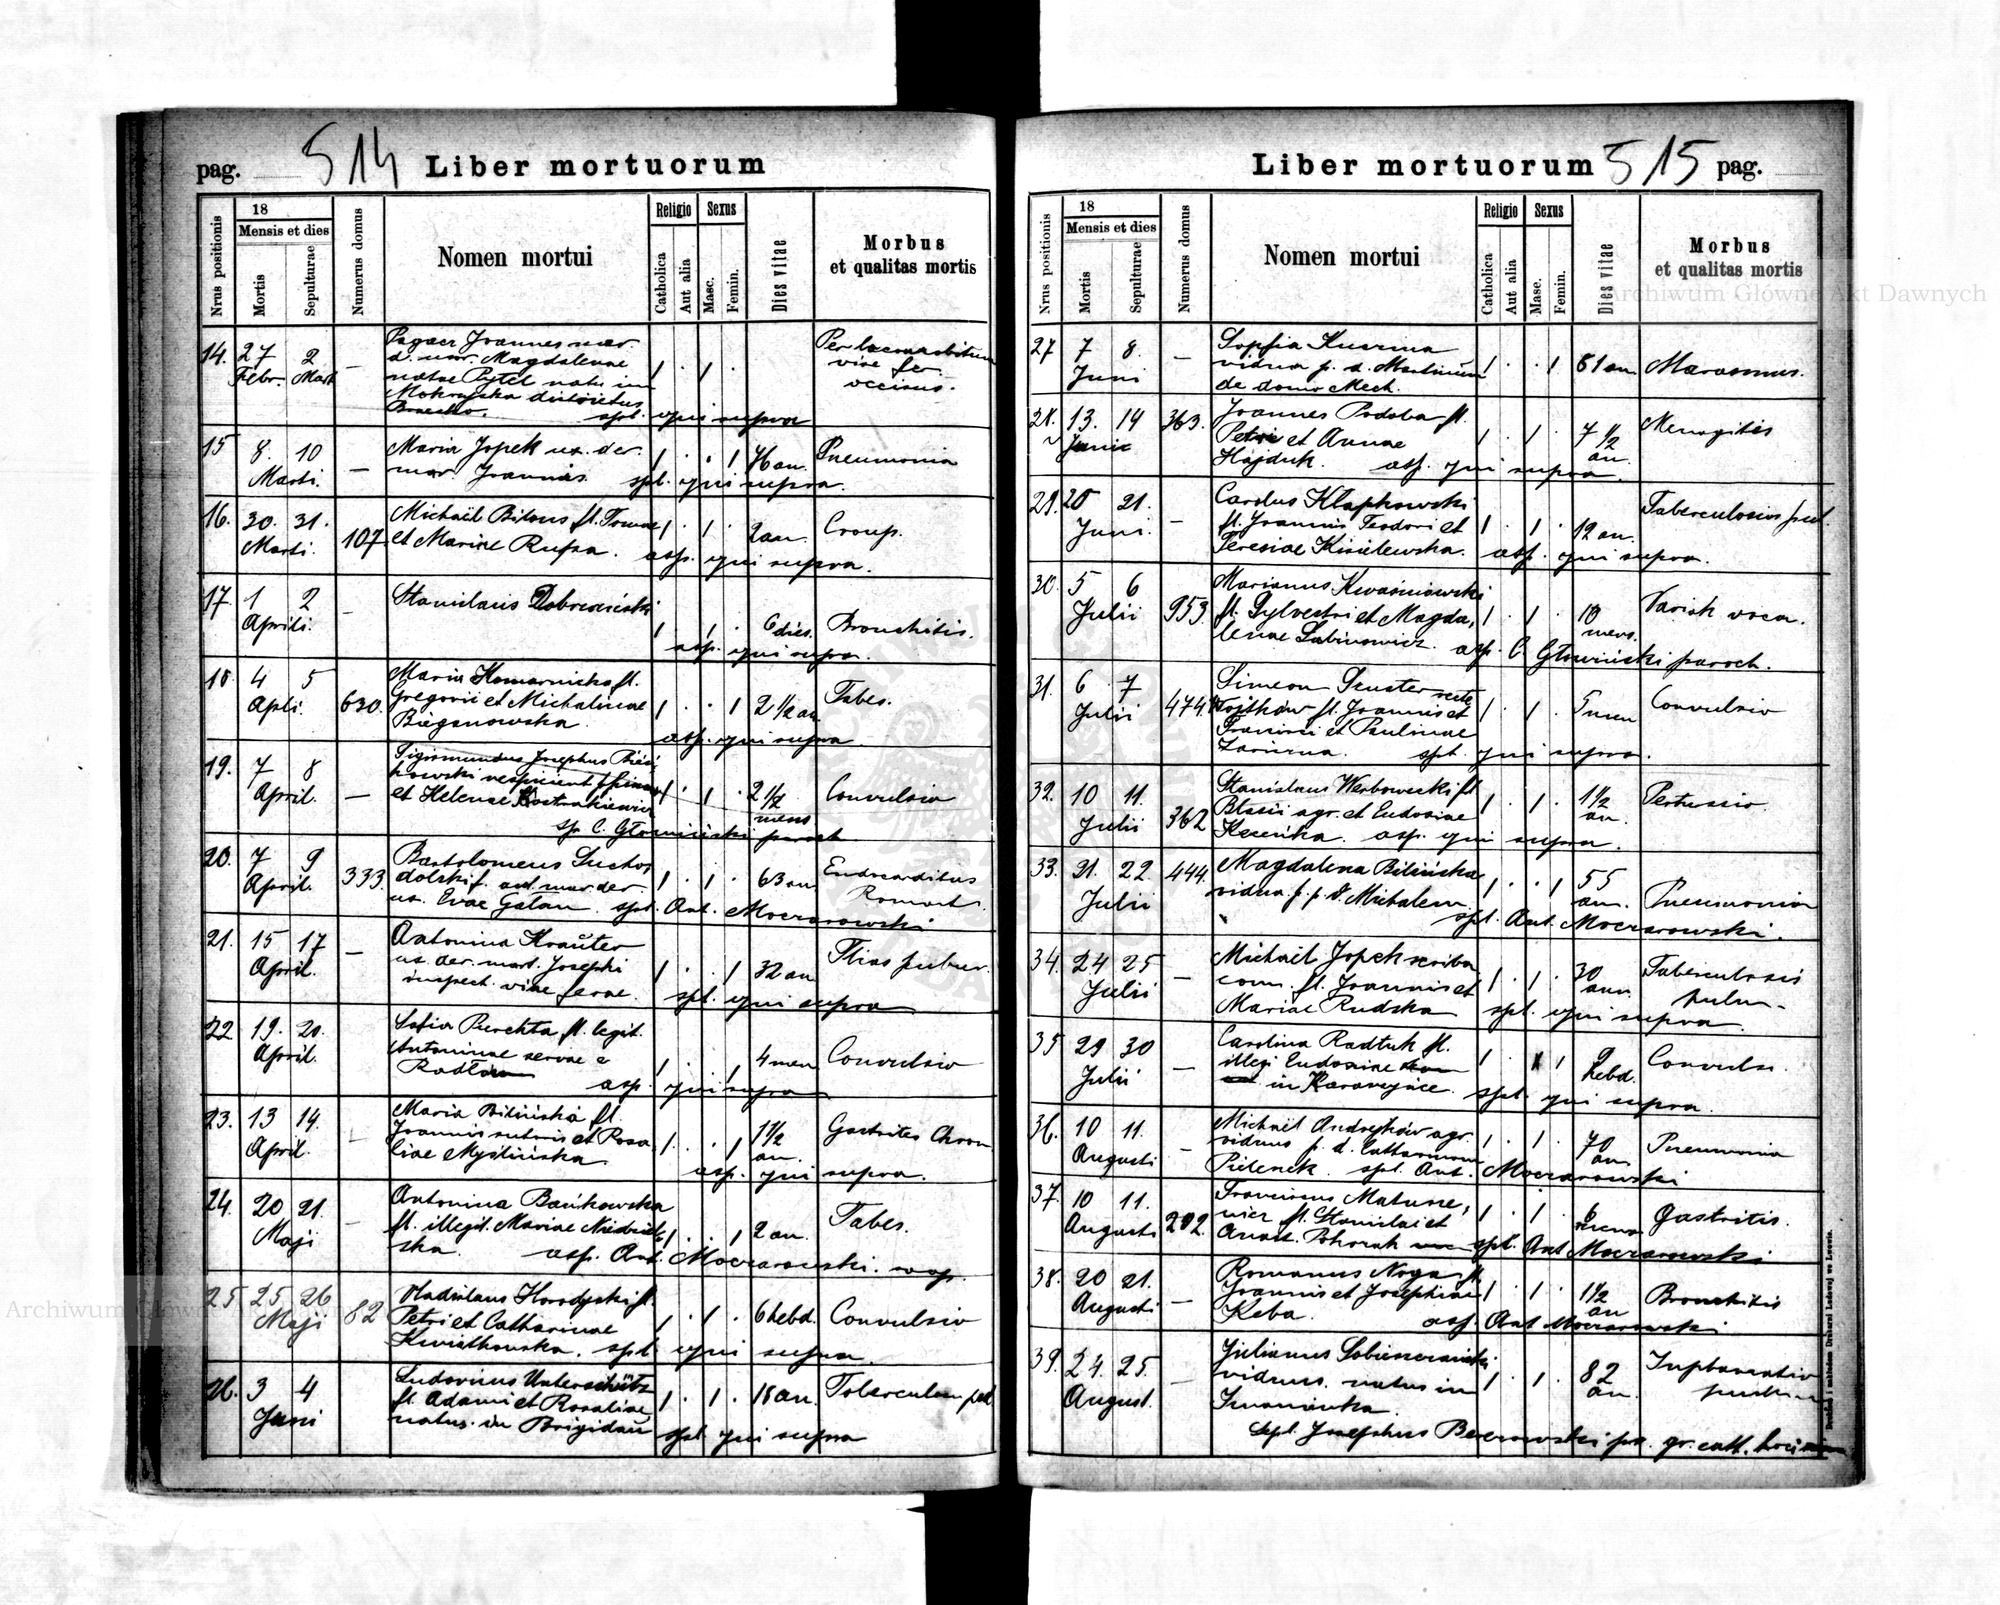 pag. 514 Liber mortuorum
Nrus positionis
18
Mensis et dies
Mortis
Sepulturae
Numerus domus
Nomen mortui
Religio
Catholica
Aut alia
Sexus
Masc.
Femin.
Dies vitae
Morbus
et qualitas mortis
14. 27 Febr. 2 Mart —
Joannes mar.
d. mar. Magdalenae
natae Pytel natus in
1 1
occisus.
spl. qui supra
15 8. 10 Marti. —
Maria Jopek ux. der.
mar. Joannis.
1 1 76 an. Pneumonia
spl. qui supra.
16. 30. 31. Marti. 107
Michaël Bilous fl. Tomae
et Mariae Rufza.
1 1 2 an. Croup.
asp. qui supra.
17. 1 2 Aprili. —
Stanislaus Dobrowolski
1 1 6 dies. Bronchitis.
asp. qui supra.
18 4 5 Apli. 630.
Maria Komarnicka fl.
Gregorii et Michalinae
Bieganowska.
1 1 2 1/2 an Tabes.
asp. qui supra.
19. 7 8 April. —
Sigismundus Josephus
et Helenae Kostrakiewicz
1 1 2 1/2 mens Convulsio
sp. C. Głowiński paroch
20. 7 9 April. 333.
Bartolomeus Sucho
dolski f. aut. mar. der.
ux. Evae Galan.
1 1 63 an. Endocarditus
spl. Ant. Moczarowski
21. 15 17 April. —
Antonina Kraüter
ux. der. mart. Josephi
inspect. viae ferae.
1 1 32 an
spl. qui supra
22 19. 20. April.
Sofia fl. legit.
Antoninae servae e
1 1 4 men Convulsio
asp. qui supra
23. 13 14. April. —
Maria Bilińska fl.
Joannis sutoris et Rosa
liae Myślińska.
1 1 1 1/2 an. Gastrites Chron
asp. qui supra.
24. 20 21. Maji —
Antonina Bańkowska
fl. illegit. Mariae Niedziel
ska.
1 1 2 an. Tabes.
asp. Ant. Moczarowski.
25. 25 26 Maji 82
Vladislaus Horodyski fl.
Petri et Catharinae
Kwiatkowska.
1 1 6 hebd. Convulsio
spl qui supra.
26. 3 4 Juni
Ludovicus Unterschütz
fl. Adami et Rosaliae
natus in Brigidau
1 1 18 an. Toberculum pul
spl. qui supra
Liber mortuorum 515 pag.
Nrus positionis
18
Mensis et dies
Mortis
Sepulturae
Numerus domus
Nomen mortui
Religio
Catholica
Aut alia
Sexus
Masc.
Femin.
Dies vitae
Morbus
et qualitas mortis
27 7 8. Juni —
Sophia
vidua p. d. Martinum
de domo Mech.
1 1 61 an Marasmus.
28. 13. 14 Junii 363.
Joannes Podoba fl.
Petri et Annae
Hajduk.
1 1 7 1/2 an. Meningitis
asp. qui supra.
29. 20 21. Juni. —
Carolus Kłapkowski
fl. Joannis Teodori et
Teresiae Kisielewska.
1 1 12 an. Tuberculosis pul.
asp. qui supra.
30. 5 6 Julii 953.
Marianus Kwaśniowski
fl. Sylvestri et Magda,
lenae Labinowicz.
1 1 10 mens.
asp. C. Głowiński paroch.
31. 6 7 Julii 474.
Simeon recte
Wojtków fl. Joannis et
Francisci et Paulinae
1 1 5 men Convulsio
spl. qui supra.
32. 10 11. Julii 362
Stanislaus Werbowecki fl
Blasii agr. et Eudosiae
1 1 1 1/2 an. Pertussio.
asp. qui supra.
33. 21. 22. Julii 444.
Magdalena Bilińska
vidua p. p. d. Michalem
1 1 55 an. Pneumonia
spl. Ant. Moczarowski.
34. 24 25 Julii —
Michaël Jopek scriba
com. fl. Joannis et
Mariae Rudzka
1 1 30 ann. Tuberculosis pulm-
spl. qui supra.
35 29 30 Julii —
Carolina Radtuk fl.
illegi Eudosiae
1 1 2 hebd. Convulsi.
spl. qui supra.
36. 10 11. Augusti —
Michaël Andrejków agr.
viduus p. d. Catharinam
1 1 70 ann Pneumonia
spl. Ant. Moczarowski
37. 10 11. Augusti 202.
Franciscus Matusze,
wicz fl. Stanislai et
Anast. Pohorak
1 1 6 mens Gastritis.
spl. Ant Moczarowski
38. 20 21. Augusti —
Romanus Noga fl.
Joannis et Josephinae
Keba.
1 1 1 1/2 an Bronchitis
asp. Ant Moczarowski
39. 24. 25. August. —
Julianus
viduus. natus in
1 1 82 an.
Spl. Josephus Berezowski pa. gr. cath. loci
Archiwum Główne Akt Dawnych
Archiwum Główne Akt Dawnych